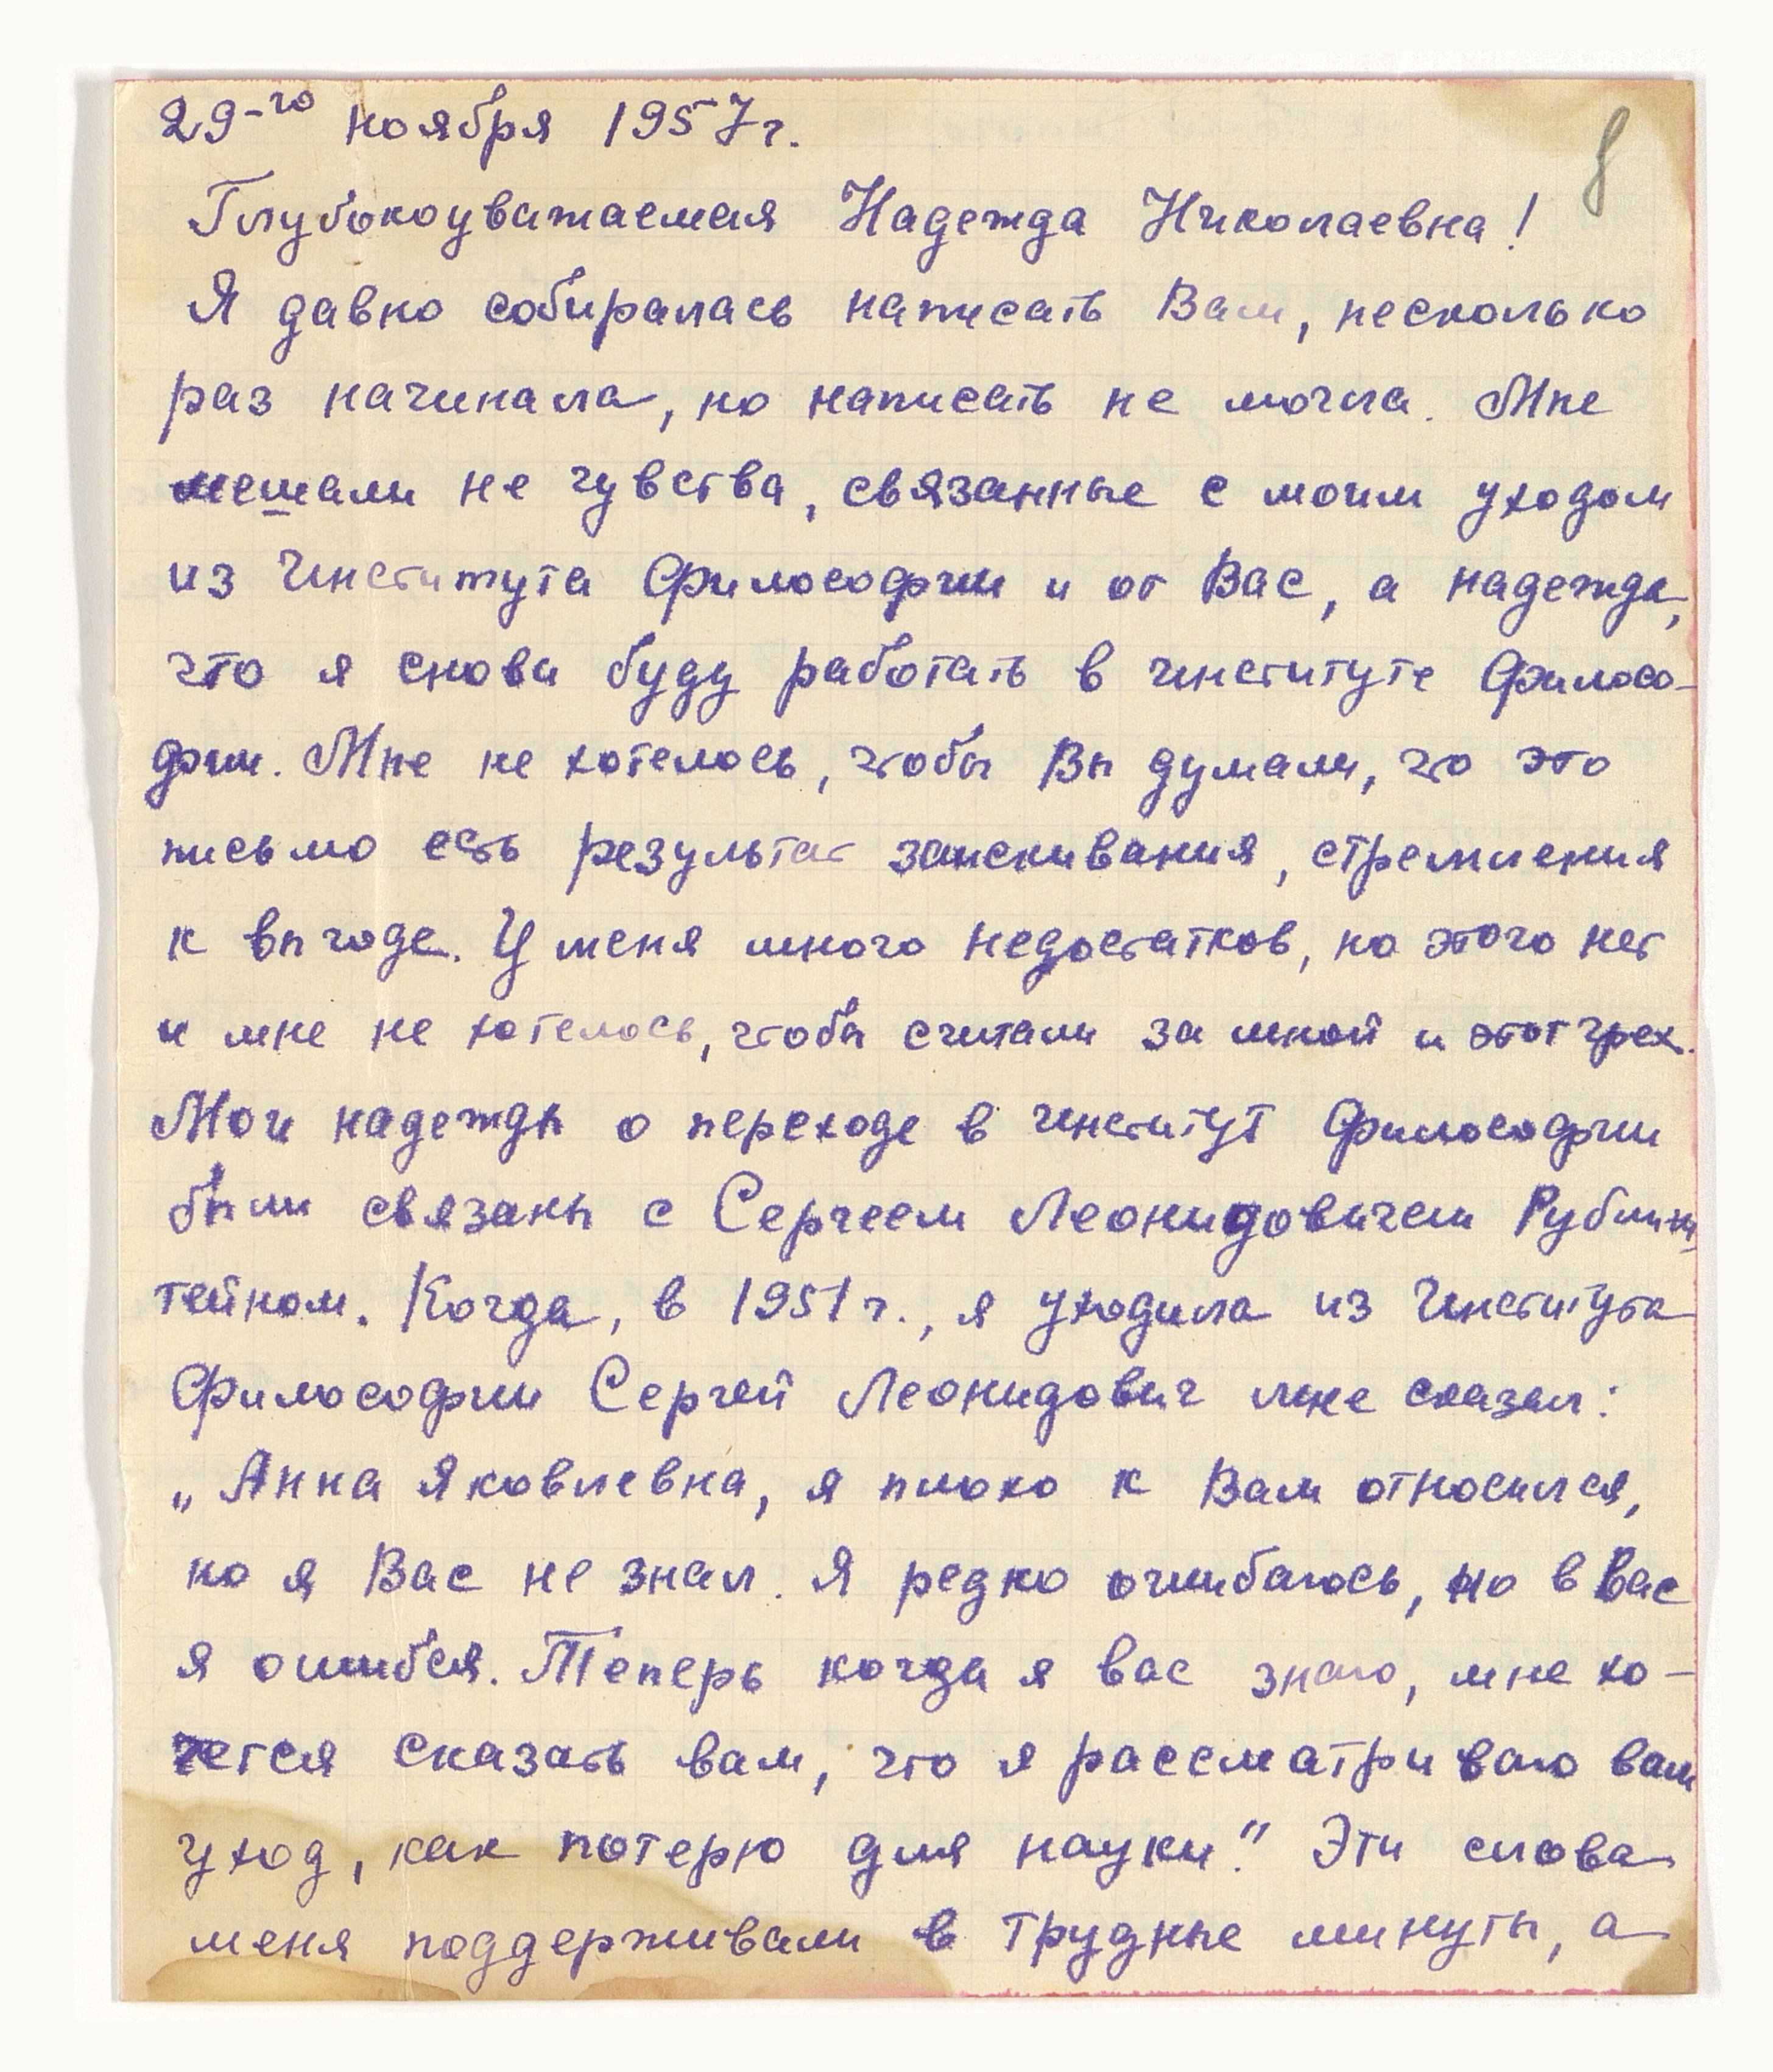 29-го ноября 1957 г.
8
Глубокоуважаемая Надежда Николаевна!
Я давно собиралась написать Вам, несколько
раз начинала, но написать не могла. Мне
мешали не чувства, связанные с моим уходом
из Института Философии и от Вас, а надежда,
что я снова буду работать в институте Филосо-
фии. Мне не хотелось, чтобы Вы думали, что это
письмо есть результат заискивания, стремления
к выгоде. У меня много недостатков, но этого нет
и мне не хотелось, чтобы считали за мной и этот грех.
Мои надежды о переходе в институт Философии
были связаны с Сергеем Леонидовичем Рубинш
тейном. Когда, в 1951 г., я уходила из Института
Философии Сергей Леонидович мне сказал:
„Анна Яковлевна, я плохо к Вам относился,
но я Вас не знал. Я редко ошибаюсь, но в Вас
я ошибся. Теперь когда я вас знаю, мне хо-
чется сказать вам, что я рассматриваю ваш
уход, как потерю для науки." Эти слова
меня поддерживали в трудные минуты, а